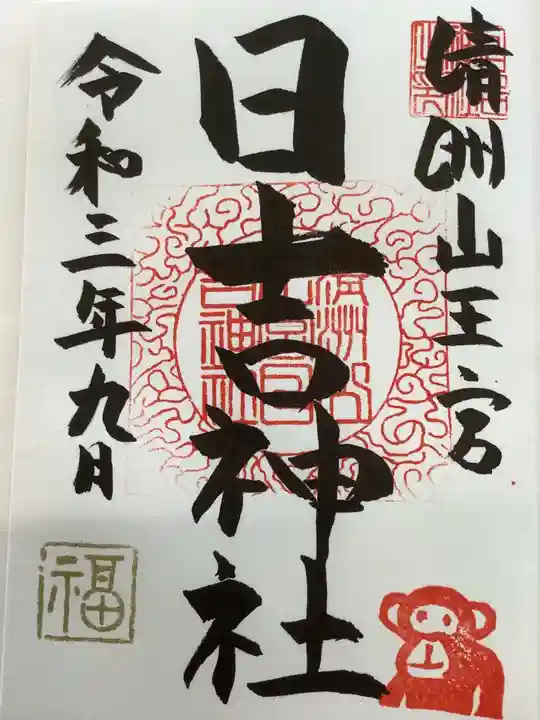 清洲山王宮
日吉神社
令和三年九月
福